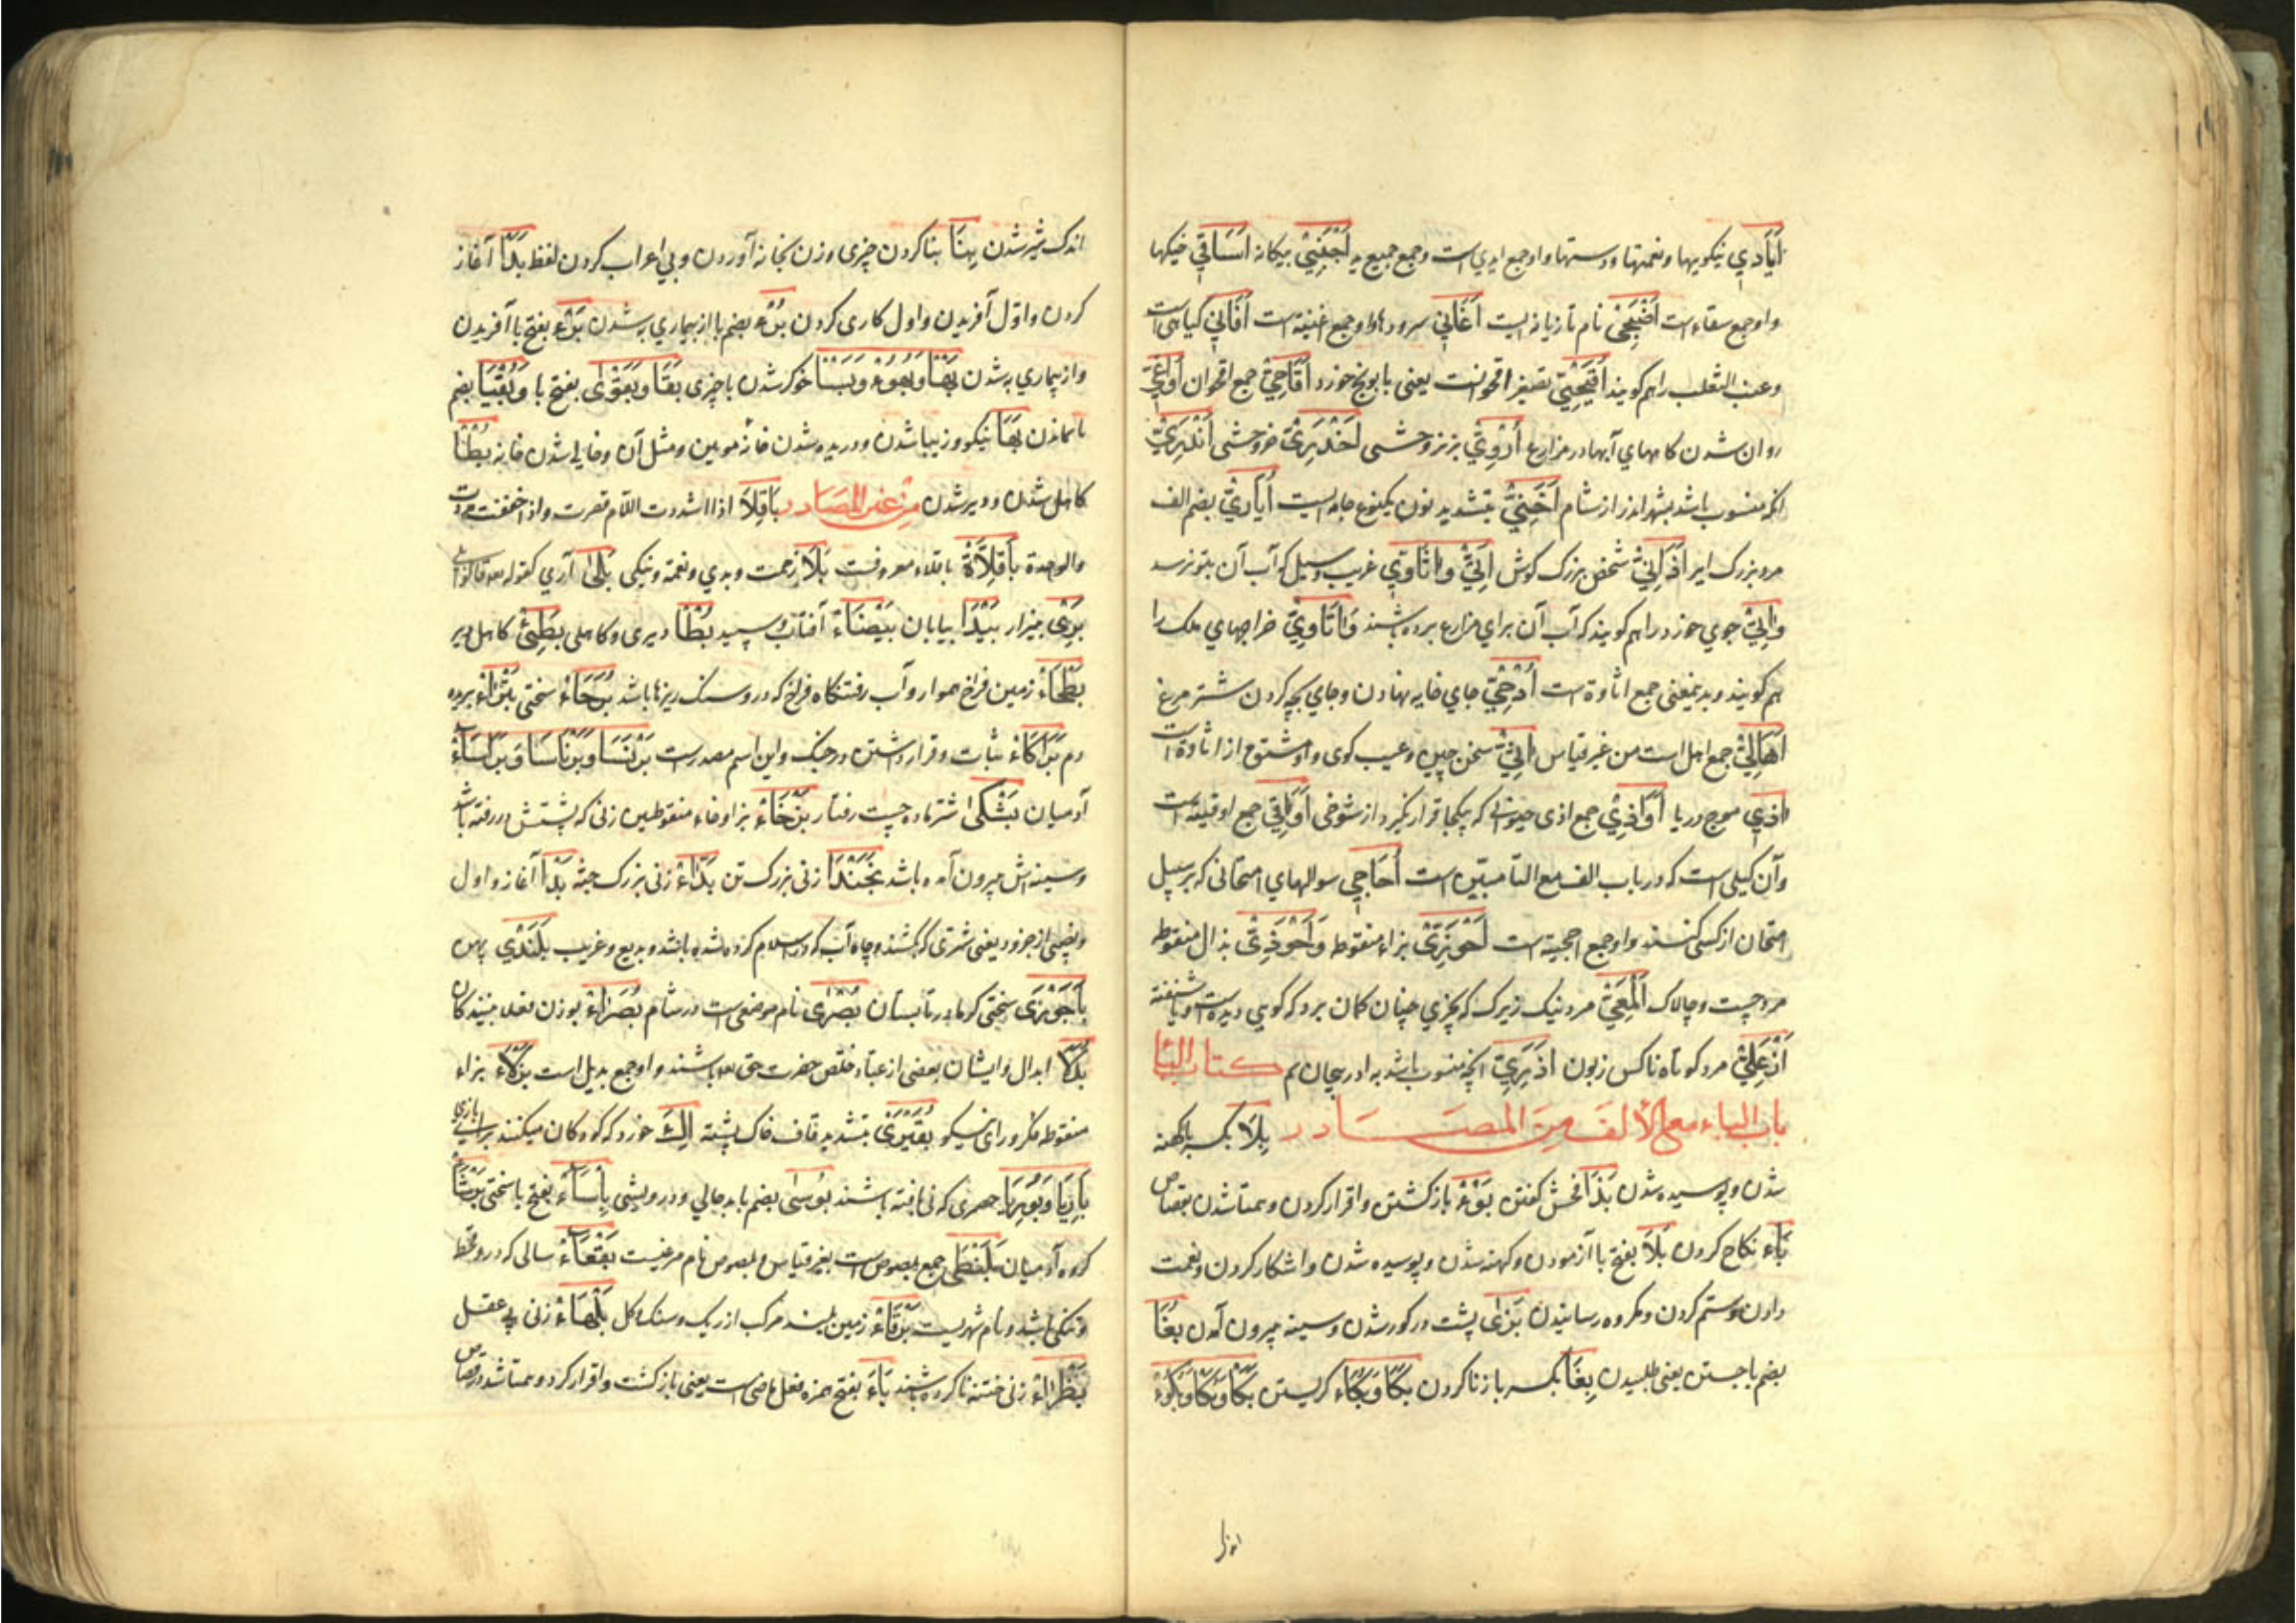 أَيَادِي نیکویها ونعمتها ودستها واو جمع ایدی است وجمع جمع ید أَجْنَبِيّ بیکانه أَسَاقِي خیکها
واو جمع سقاء است أَصْبَحِيّ نام تازیانه ایست أَغَانِي سرودها واو جمع اغنیة است أَفَانِي کیاهی است
وعنب الثعلب را هم کویند أُقَيْحِيّ تصغیر اقحوانست یعنی بابونج خورد أَقَاحِيّ جمع اقحوان
روان شدن آبها در مزارع بزنر وحشی أَخْدَرِيّ خر وحشی أَنْدَرِيّ
انکه منسوب باشد بشهر اندر از شام أَخِنِيّ بتشدید نون یکنوع جامه ایست أُيَارِيّ بضم الف
مرد بزرک ایر أُذَانِيّ شخص بزرک کوش أَتِيّ وأَتَاوِيّ غریب وسیل که آب آن بتو نرسد
وأَتِيّ جوی خورد را هم کویند که آب آن برای مزارع برده باشند وأَتَاوِيّ خراجهای ملک را
هم کویند وبدینمعنی جمع اتاوة است أُدْحِيّ جای خایه نهادن وجای بچه کردن شتر مرغ
أَهَالِي جمع اهل است من غیر قیاس سخن چین وعیب کوی واو مشتق از اثاوة است
آذِي موج دریا أَوَاذِي جمع اذی حیوانی که بیکجا قرار نکیرد از شوخی أَوَاقِي جمع اوقیة است
وآن کیلی است که در باب الف مع التا مبین است أَحَاجِي سوالهای امتحانی که بر سبیل
امتحان از کسی کنند واو جمع احجیة است أَحْوَزِيّ بزاء منقوطه وأَحْوَذِيّ بذال منقوطه
مرد چست وچالاک أَلْمَعِيّ مرد نیک زیرک که بچیزی چنان کمان برد که کویی دیده است ویا شنفته
مرد کوتاه ناکس زبون أَذْرَبِيّ انچه منسوب باشد به ادربیجان تم کتاب البا
باب الباء مع الألف من المصادر بِلَا بکسر با کهنه
شدن وپوسیده شدن بَذَا فحش کفتن بَوْء بازکشتن واقرار کردن وهمتا شدن بقصاص
بَاء نکاح کردن بَلَا بفتح با آزمودن وکهنه شدن وپوسیده شدن واشکار کردن ونعمت
دادن وستم کردن ومکروه رسانیدن بَزَى پشت در کور شدن وسینه بیرون آمدن بُغَا
بضم با جستن یعنی طلبیدن بِغَا بکسر با زنا کردن بُكَا وبُكَاء کریستن بَكْأ وبَكَا وبُكُوء
اندک
اندک شیر شدن بِنَا بنا کردن چیزی وزن بخانه آوردن وبی اعراب کردن لفظ بَدْأ آغاز
کردن واوّل آفریدن واول کاری کردن بُرْء بضم با از بیماری به شدن بَرْء بفتح با آفریدن
واز بیماری به شدن بَهَا وبُهُوء خوکر شدن با چیزی بَقَا وبَقْوَى بفتح با وبُقْيَا بضم
با ماندن بَهَا نیکو وزیبا شدن ودریده شدن خانه مویین ومثل آن وخالی شدن خانه بُطْأ
کاهل شدن ودیر شدن من غیر المصادر بَاقِلَّا اذا اشددت اللام قصرت واذا خففت مددت
والواحدة بَاقِلَّاة باقلاء معروفست بَلَا زحمت وبدی ونعمة ونیکی بَلَى آری کقوله تعالی قالوا بلی
بَرِى بیزار بَيْدَا بیابان بَيْضَاء آفتاب وسپید بُطْأ دیری وکاهلی بَطِئ کاهل دیر
بَطْحَاء زمین فراخ هموار وآب رفتنکاه فراخ که درو سنک ریزها باشد بُرَحَاء سختی بَتْرَاء بریده
دم بَرَاكَاء ثبات وقرار داشتن در جنک واین اسم مصدرست بَرْنَسَا وبَرْنَاسَا وبَرَاسَاء
آدمیان بَشَكَى شتر ماده چست رفتار بَزْخَاء بزا وخاء منقوطین زنی که پشتش در رفته باشد
وسینه اش بیرون آمده باشد بَخَنْدَا زنی بزرک تن بَدَّاء زنی بزرک جثه بَدْأ آغاز واول
ونصیبی از جزور یعنی شتری که بکشند وچاه آب که در اسلام کرده شده باشد وبدیع وغریب بَلَنْدَى پهن
بَاحَوْرَى سختی کرما در تابستان بُصْرَى نام موضعی است در شام بُصَرَاء بوزن فعلا بینندکان
بُدَلَا ابدال وایشان بعضی از عباد مخلص حضرت حق تعالی باشند واو جمع بدیل است بَزْلَاء بزاء
منقوطه فکر ورای نیکو بُقَّيْرَى بتشدید قاف خاک پشته خورد که کودکان میکنند برای بازی
بَارِيَا وبُورِيَا حصیری که نی بافته باشند بُوسَى بضم با بدحالی ودرویشی بَأْسَاء بفتح با سختی بَرْشَاء
کروه آدمیان بَلَنْصَى جمع بلصوص است بغیر قیاس وبلصوص نام مرغیست بَقْعَاء سالی که درو قحط
وتنکی باشد ونام شهریست بَرْقَاء زمین بلند مرکب از ریک وسنک وکل بَلْهَاء زنی بی عقل
بَظْرَاء زنی ختنه ناکرده شده بَاءَ بفتح همزه فعل ماضی است یعنی بازکشت واقرار کرد وهمتا شد در قصاص